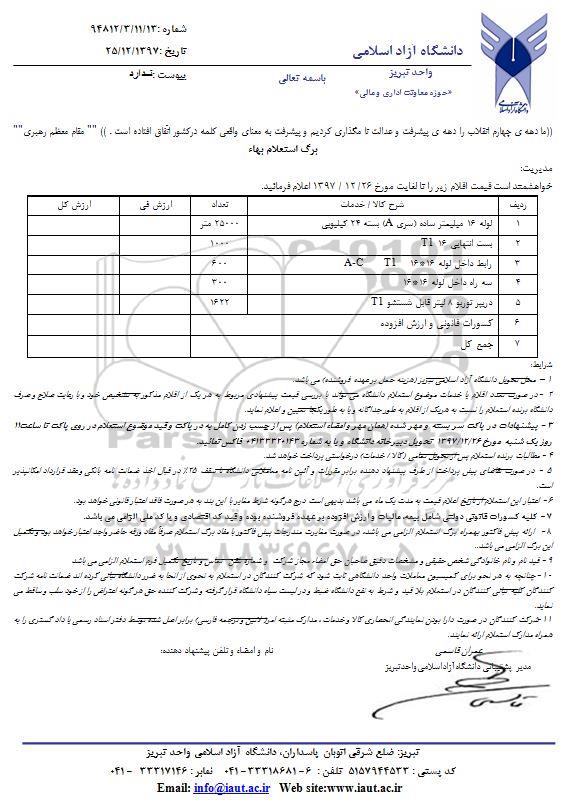 شماره: ۹۴۸۱۲/۳/۱۱/۱۳
تاریخ: ۲۵/۱۲/۱۳۹۷
پیوست: ندارد
باسمه تعالی
دانشگاه آزاد اسلامی
واحد تبریز
«حوزه معاونت اداری و مالی»
((ما دهه ی چهارم انقلاب را دهه ی پیشرفت و عدالت نا مگذاری کردیم و پیشرفت به معنای واقعی کلمه درکشور اتفاق افتاده است . )) "" مقام معظم رهبری""
برگ استعلام بهاء
مدیریت:
خواهشمند است قیمت اقلام زیر را تا لغایت مورخ ۲۶/ ۱۲/ ۱۳۹۷ اعلام فرمائید.
ردیف شرح کالا / خدمات تعداد ارزش فی ارزش کل
۱ لوله ۱۶ میلیمتر ساده (سری A) بسته ۲۴ کیلیویی ۲۵۰۰۰ متر
۲ بست انتهایی ۱۶ T1 ۱۰۰۰
۳ رابط داخل لوله ۱۶*۱۶ A-C T1 ۶۰۰
۴ سه راه داخل لوله ۱۶*۱۶ ۳۰۰
۵ دریپر توربو ۸ لیتر قابل شستشو T1 ۱۶۲۲
۶ کسورات قانونی و ارزش افزوده
۷ جمع کل
شرایط:
۱ – محل تحویل دانشگاه آزاد اسلامی تبریز (هزینه حمل بر عهده فروشنده) می باشد.
۲ - در صورت تعدد اقلام یا خدمات موضوع استعلام دانشگاه می تواند با بررسی قیمت پیشنهادی مربوط به هر یک از اقلام مذکور به تشخیص خود و با رعایت صلاح و صرفه
دانشگاه برنده استعلام را نسبت به هریک از اقلام به طور جداگانه و یا به طور یکجا تعیین و اعلام نماید.
۳ - پیشنهادات در پاکت سر بسته و مهر شده (همان مهر و امضاء استعلام) پس از چسب زدن کامل به در پاکت و قید موضوع استعلام در روی پاکت تا ساعت۱۱
روز یک شنبه مورخ ۱۳۹۷/۱۲/۲۶ تحویل دبیرخانه دانشگاه و یا به شماره ۰۴۱۳۳۳۲۰۱۴۳ فاکس نمائید.
۴ - مطالبات برنده استعلام پس از تحویل تمامی (کالا / خدمات) درخواستی پرداخت خواهد شد.
۵ - در صورت تقاضای پیش پرداخت از طرف پیشنهاد دهنده برابر مقررات و آئین نامه معاملاتی دانشگاه تا سقف ۲۵٪ در قبال اخذ ضمانت نامه بانکی وعقد قرارداد امکانپذیر
است.
۶ - اعتبار این استعلام از تاریخ اعلام قیمت به مدت یک ماه می باشد بدیهی است درج هرگونه شرط مغایر با این بند به هر صورت فاقد اعتبار قانونی خواهد بود.
۷- کلیه کسورات قانونی دولتی شامل بیمه، مالیات و ارزش افزوده بر عهده فروشنده بوده و قید کد اقتصادی و یا کد ملی الزامی می باشد.
۸- ارائه پیش فاکتور بهمراه برگ استعلام الزامی می باشد، در صورت مغایرت مندرجات پیش فاکتور با مفاد برگ استعلام صرفاً مفاد ورقه حاضر واجد اعتبار خواهد بود و تکمیل
این برگ الزامی می باشد..
۹ - قید نام و نام خانوادگی شخص حقیقی و مشخصات دقیق صاحبان حق امضاء مجاز شرکت و شماره تلفن تماس و تاریخ تکمیل فرم استعلام الزامی می باشد
۱۰-چنانچه به هر نحو برای کمیسیون معاملات واحد دانشگاهی ثابت شود که شرکت کنندگان در استعلام به نحوی از انحا به ضرر دانشگاه تبانی کرده اند ضمانت نامه شرکت
کنندگان کلیه تبانی کنندگان در استعلام بلا قید و شرط به نفع دانشگاه ضبط و در لیست سیاه دانشگاه قرار گرفته و شرکت کننده حق هر گونه اعتراض را از خود سلب و ساقط می
نماید.
۱۱-شرکت کنندگان در صورت دارا بودن نمایندگی انحصاری کالا وخدمات ، مدارک مثبته امر( لاتین و ترجمه فارسی) برابر اصل شده توسط دفتر اسناد رسمی یا داد گستری را به
همراه مدارک استعلام ارائه نمایند.
عمران قاسمی
نام و امضاء و تلفن پیشنهاد دهنده:
مدیر پشتیبانی دانشگاه آزاد اسلامی واحد تبریز
تبریز: ضلع شرقی اتوبان پاسداران، دانشگاه آزاد اسلامی واحد تبریز
کد پستی : ۵۱۵۷۹۴۴۵۳۳ تلفن : ۶-۳۳۳۱۸۶۸۱-۰۴۱ نمابر : ۳۳۳۱۷۱۴۶ -۰۴۱
Email: info@iaut.ac.ir Web site:www.iaut.ac.ir